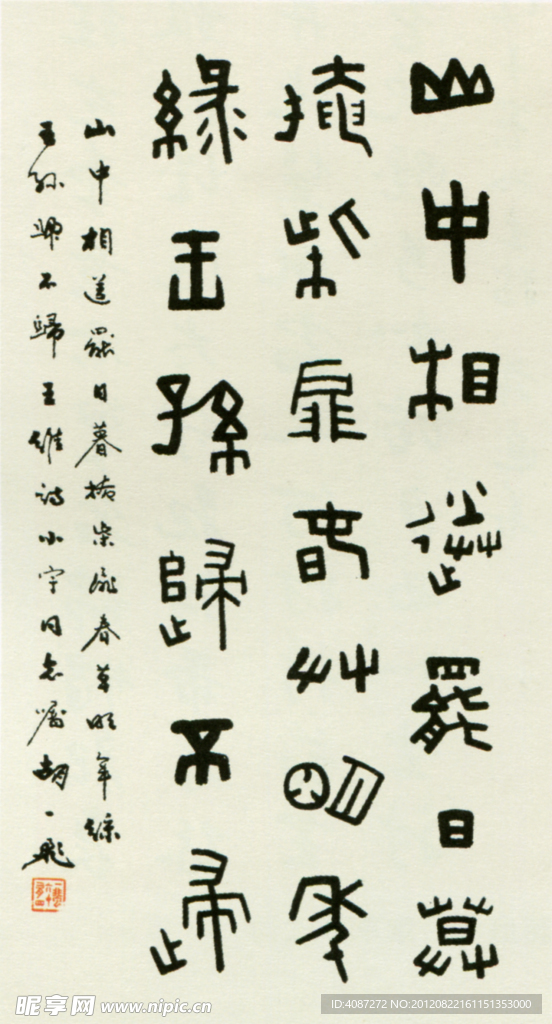 山中相送罷日暮
掩柴扉春艸明年
綠王孫歸不歸
山中相送罷日暮掩柴扉春草明年綠
王孫歸不歸王維詩小宇同志囑胡一飛
昵享网 www.nipic.cn
ID:4087272 NO:20120822161151353000